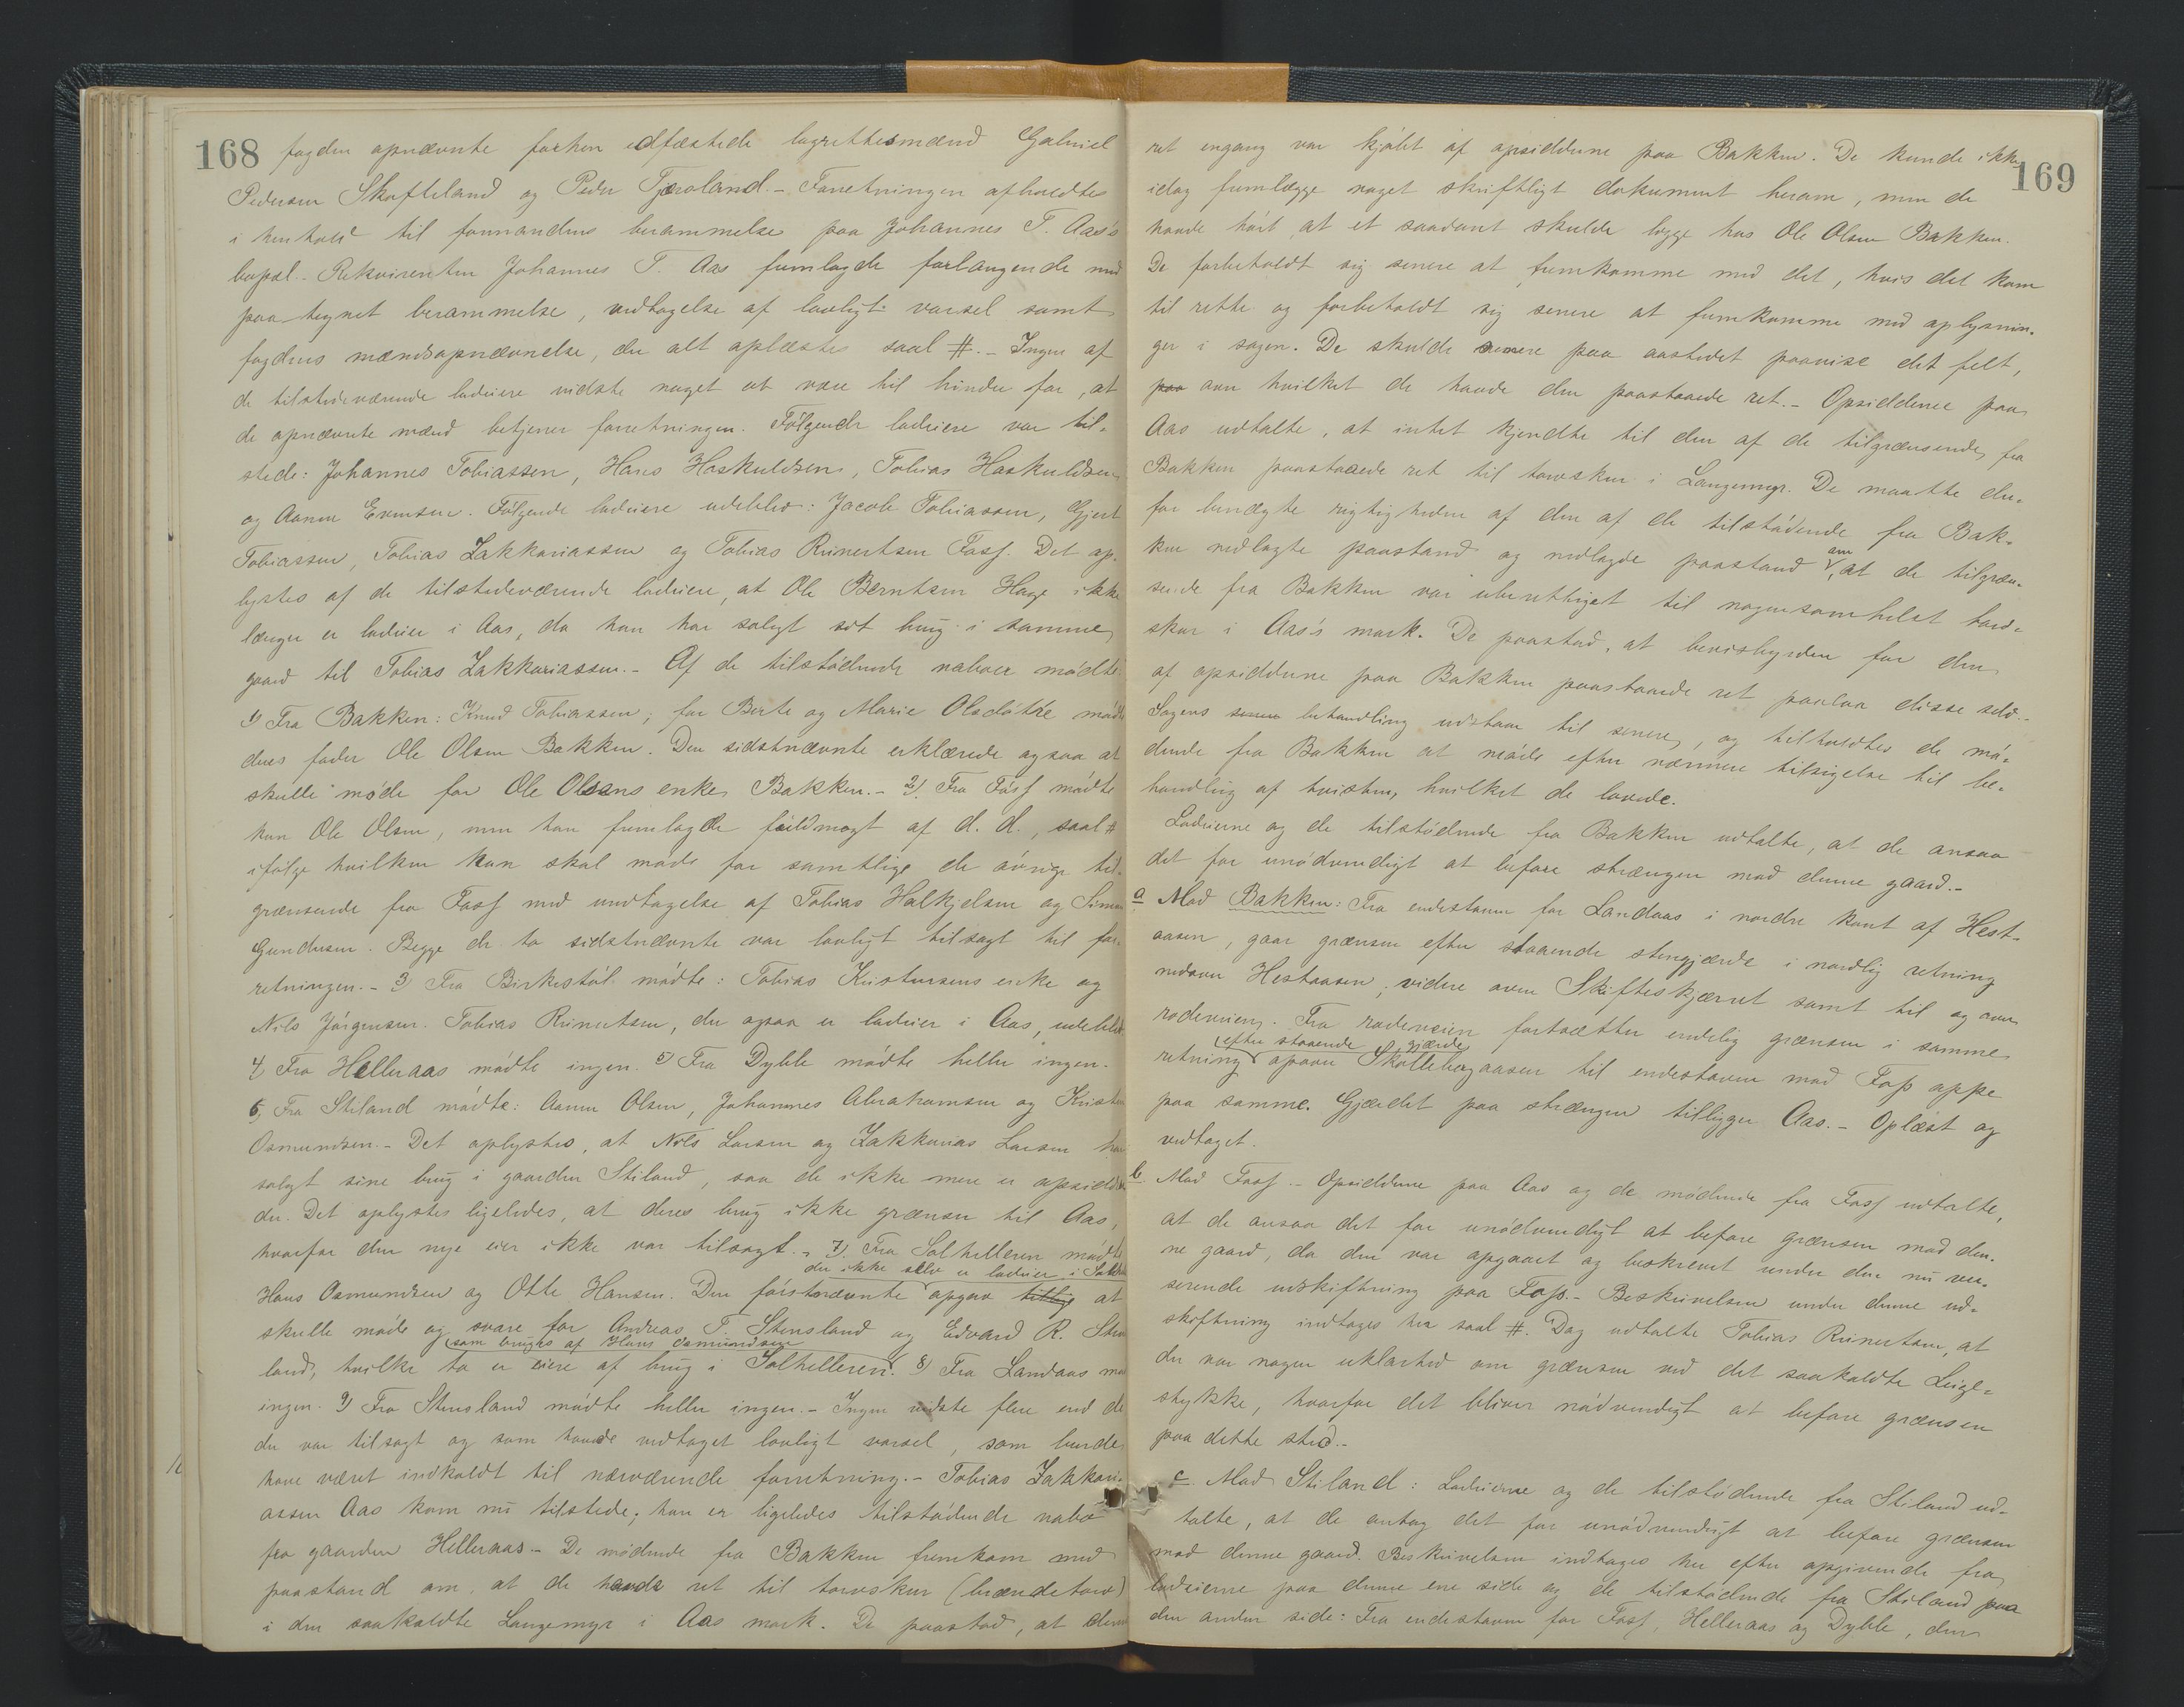 168
fogden opnævnte forhen edfæstede lagrettesmænd Gabriel
Pedersen Skofteland og Peder Tjøroland. - Forretningen afholdtes
i henhold til formandens berammelse paa Johannes T. Aas's
bopæl. Rekvirenten Johannes T. Aas fremlagde forlangende med
paategnet berammelse, vedtagelse af lovligt varsel samt
fogdens mændsopnævnelse, der alt oplæstes saal #. - Ingen af
de tilstedeværende lodeiere vidste noget at være til hinder for, at
de opnævnte mænd betjener forretningen. Følgende lodeiere var til-
stede: Johannes Tobiassen, Hans Haskuldsen, Tobias Haskuldsen
og Aanen Evensen. Følgende lodeiere udeblev: Jacob Tobiassen, Gjert
Tobiassen, Tobias Zakkariassen og Tobias Reinertsen Foss. Det op-
lystes af de tilstedeværende lodeiere, at Ole Berntsen Hage ikke
længer er lodeier i Aas, da han har solgt sit brug i samme
gaard til Tobias Zakkariassen. - Af de tilstødende naboer mødte:
1) Fra Bakken: Knud Tobiassen; for Berte og Marie Olsdøtre mødte
deres fader Ole Olsen Bakken. Den sidstnævnte erklærede ogsaa at
skulle møde for Ole Olsens enke Bakken. - 2) Fra Foss mødte
kun Ole Olsen, men han fremlagde fuldmagt af d. d., saal #
ifølge hvilken han skal møde for samtlige de øvrige til-
grænsende fra Foss med undtagelse af Tobias Halkjelsen og Simon
Gundersen. Begge de to sidstnævnte var lovligt tilsagt til for-
retningen. - 3) Fra Birkestøl mødte: Tobias Kristensens enke og
Nils Jørgensen. Tobias Reinertsen, der ogsaa er lodeier i Aas, udeblev
4) Fra Helleraas mødte ingen. 5) Fra Dyble mødte heller ingen.
6) Fra Stiland mødte: Aanen Olsen, Johannes Abrahamsen og Kristen
Osmundsen. - Det oplystes, at Nils Larsen og Zakkarias Larsen har
solgt sine brug i gaarden Stiland, saa de ikke mere er opsiddere
der. Det oplystes ligeledes, at deres brug ikke grænser til Aas,
hvorfor den nye eier ikke var tilsagt. - 7) Fra Solhelleren mødte
der ikke selv er lodeier i Solh
Hans Osmundsen og Otte Hansen. Den førstnævnte opgav tillige at
skulle møde og svare for Andreas T. Stensland og Edvard R. Stens
som bruges af Hans Osmundsen
land, hvilke to er eiere af brug i Solhelleren. 8) Fra Landaas mø
ingen. 9) Fra Stensland mødte heller ingen. - Ingen vidste flere end de
der var tilsagt og som havde vedtaget lovligt varsel, som burde
have været indkaldt til nærværende forretning. - Tobias Zakkari-
assen Aas kom nu tilstede; han er ligeledes tilstødende nabo
fra gaarden Helleraas. - De mødende fra Bakken fremkom med
paastand om, at de havde ret til torvskur (brændetorv)
i den saakaldte Langemyr i Aas mark. De paastod, at denne
169
ret engang var kjøbt af opsidderne paa Bakken. De kunde ikke
idag fremlægge noget skriftligt dokument herom, men de
havde hørt at et saadant skulde ligge hos Ole Olsen Bakken.
De forbeholdt sig senere at fremkomme med det, hvis det kom
til rette og forbeholdt sig senere at fremkomme med oplysnin-
ger i sagen. De skulde senere paa aastedet paavise det felt,
paa over hvilket de havde den paastaaede ret. - Opsidderne paa
Aas udtalte, at intet kjendte til den af de tilgrænsende fra
Bakken paastaaede ret til torvskur i Langemyr. De maatte der-
for benægte rigtigheden af den af de tilstødende fra Bak-
ken nedlagte paastand og nedlagde paastand om, at de tilgræn-
sende fra Bakken var uberettiget til nogensomhelst torv-
skur i Aas's mark. De paastod, at bevisbyrden for den
af opsidderne paa Bakken paastaaede ret paalaa disse selv. -
Sagens senere behandling udstaar til senere, og tilholdtes de mø-
dende fra Bakken at møde efter nærmere tilsigelse til be-
handling af tvisten, hvilket de lovede.
Lodeierne og de tilstødende fra Bakken udtalte, at de ansaa
det for unødvendigt at befare strængen mod denne gaard. -
a Mod Bakken: Fra endestaven for Landaas i nordre kant af Hest-
aasen, gaar grænsen efter staaende stengjærde i nordlig retning
nedover Hestaasen, videre over Skifteskjærret samt til og over
rodeveien. Fra rodeveien fortsætter endelig grænsen i samme
efter staaende gjærde
retning opover Skollebergaasen til endestaven mod Foss oppe
paa samme. Gjærdet paa strængen tilligger Aas. - Oplæst og
vedtaget.
b. Mod Foss. - Opsidderne paa Aas og de mødende fra Foss udtalte,
at de ansaa det for unødvendigt at befare grænsen mod den-
ne gaard, da den var opgaaet og beskrevet under den nu ver-
serende udskiftning paa Foss. - Beskrivelsen under denne ud-
skiftning indtages her saal #. Dog udtalte Tobias Reinertsen, at
der var nogen uklarhed om grænsen ved det saakaldte Leige-
stykke, hvorfor det bliver nødvendigt at befare grænsen
paa dette sted. -
c. Mod Stiland: Lodeierne og de tilstødende fra Stiland ud-
talte, at de antog det for unødvendigt at befare grænsen
mod denne gaard. Beskrivelsen indtages her efter opgivende fra
lodeierne paa denne ene side og de tilstødende fra Stiland paa
den anden side: Fra endestaven for Foss, Helleraas og Dyble, den